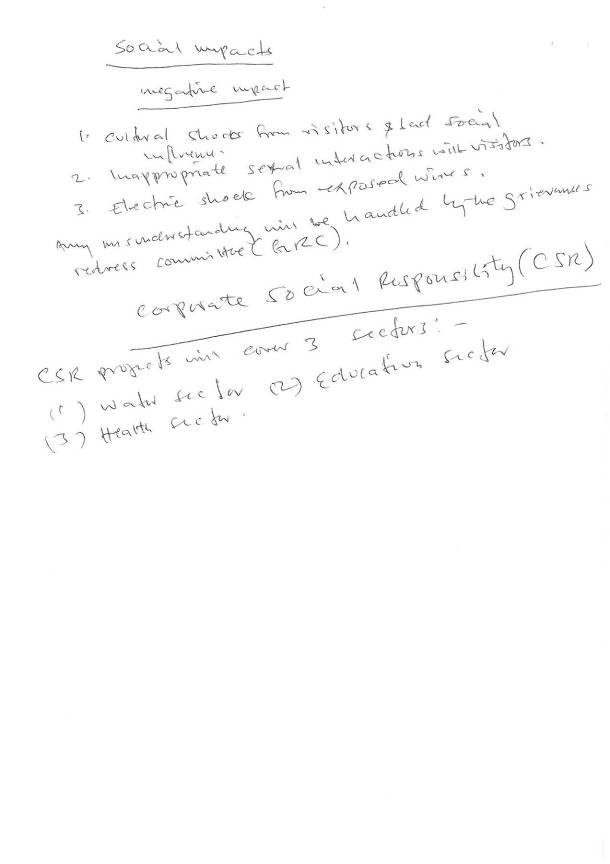 Social impacts
negative impact
1. Cultural shocks from visitors & bad social
influence.
2. Inappropriate sexual interactions with visitors.
3. Electric shock from exposed wires.
Any misunderstanding will be handled by the grievances
redress committee (GRC).
Corporate Social Responsibility (CSR)
CSR projects will cover 3 sectors: -
(1) Water sector (2) Education sector
(3) Health sector.